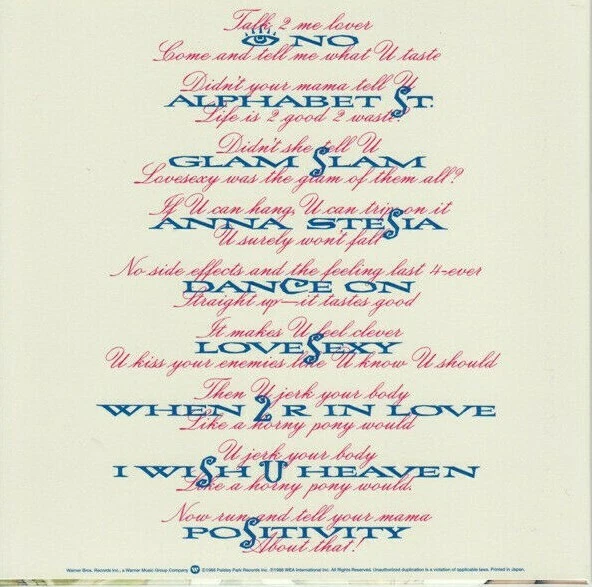 Talk 2 me lover
👁 NO
Come and tell me what U taste
Didn't your mama tell U
ALPHABET ST.
Life is 2 good 2 waste?
Didn't she tell U
GLAM SLAM
Lovesexy was the glam of them all?
If U can hang, U can trip on it
ANNA STESIA
U surely won't fall
No side effects and the feeling last 4-ever
DANCE ON
Straight up—it tastes good
It makes U feel clever
LOVESEXY
U kiss your enemies like U know U should
Then U jerk your body
WHEN 2 R IN LOVE
Like a horny pony would
U jerk your body
I WISH U HEAVEN
Like a horny pony would.
Now run and tell your mama
POSITIVITY
About that!
Warner Bros. Records Inc., a Warner Music Group Company. ℗1988 Paisley Park Records Inc. ©1988 WEA International Inc. All Rights Reserved. Unauthorized duplication is a violation of applicable laws. Printed in Japan.